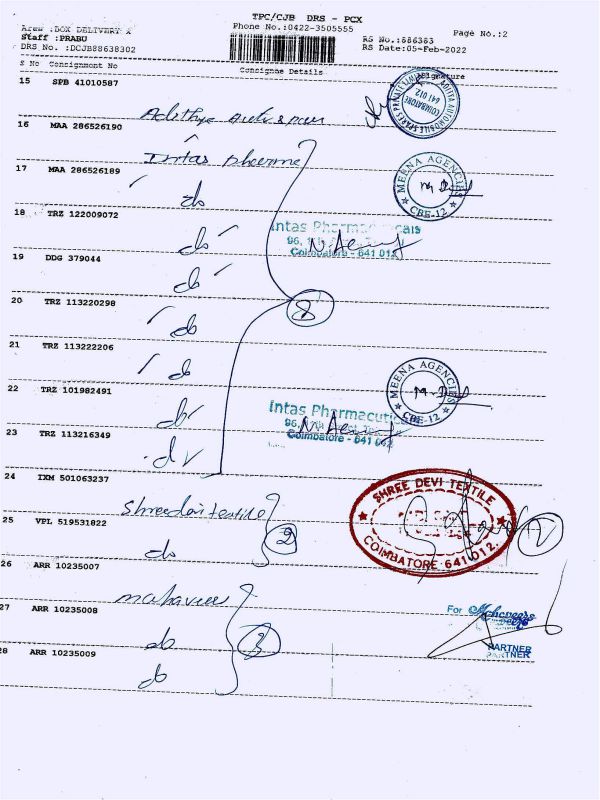 TPC/CJB DRS - PCX
Area :BOX DELIVERY X
Phone No.:0422-3505555
Page No.:2
Staff :PRABU
RS No.:886383
DRS No. :DCJB88638302
RS Date:05-Feb-2022
S No Consignment No
Consignee Details
Signature
15 SPB 41010587
COIMBATORE
641 012.
16 MAA 286526190
Intas pharma
17 MAA 286526189
do
MEENA AGENCIES
CBE-12
18 TRZ 122009072
do
Intas Pharmaceuticals
Coimbatore - 641 012
19 DDG 379044
do
8
20 TRZ 113220298
do
21 TRZ 113222206
do
MEENA AGENCIES
CBE-12
22 TRZ 101982491
do
Intas Pharmaceuticals
Coimbatore - 641 012
23 TRZ 113216349
do
24 IXM 501063237
Shreedevi textile
SHREE DEVI TEXTILE
COIMBATORE - 641 012.
2
25 VPL 519531822
do
2
26 ARR 10235007
27 ARR 10235008
do
3
For
PARTNER
PARTNER
28 ARR 10235009
do